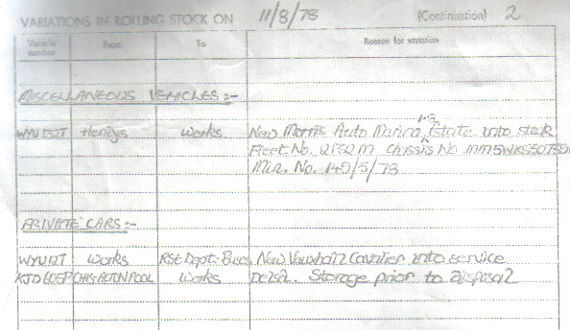 VARIATIONS IN ROLLING STOCK ON 11/8/78 (Continuation) 2
Vehicle number From To Reason for variation
MISCELLANEOUS VEHICLES:-
Henlys Works New Morris Auto Marina 1.8 Estate into stock
Fleet No. 2152M Chassis No.
Min. No. 149/5/78
PRIVATE CARS:-
WYU12T Works Dept. New Vauxhall Cavalier into service
Works Delic. Storage prior to disposal